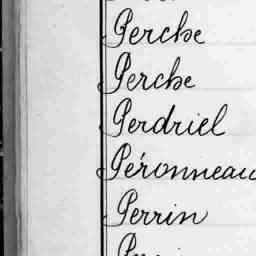 Perche
Perche
Perdriel
Péronneau
Perrin